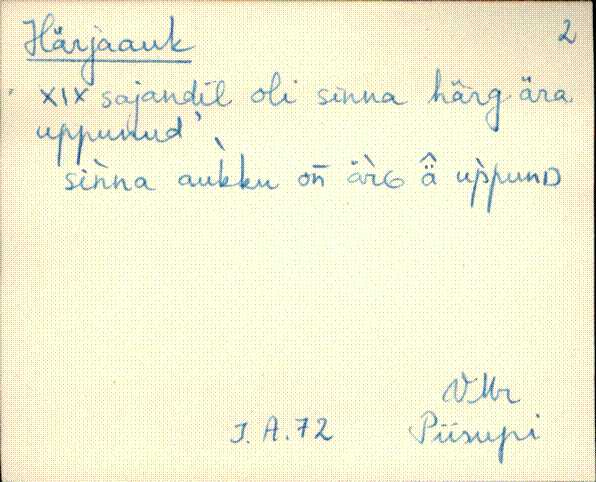 Härjaauk 2
' XIX sajandil oli sinna härg ära
uppunud'
sìnna aùkku on̄ ä̀rG ä̂ up̀punD
VMr
J. A. 72 Piisupi